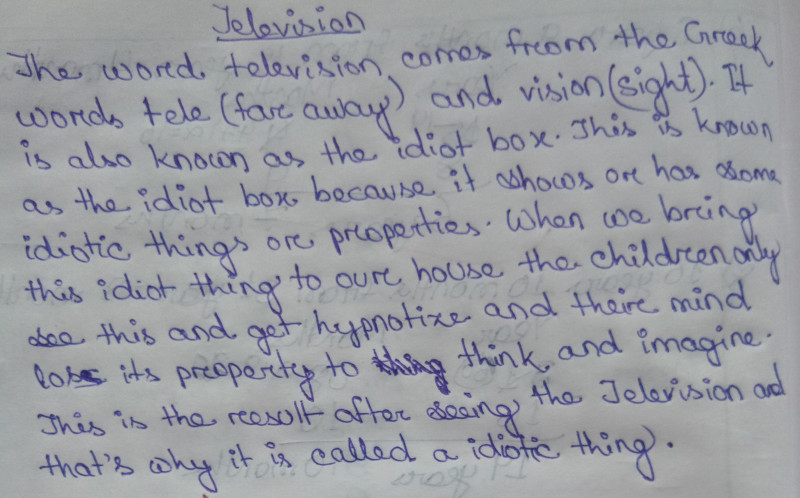 Television
The word television comes from the Greek
words tele (far away) and vision (sight). It
is also known as the idiot box. This is known
as the idiot box because it shows or has some
idiotic things or properties. When we bring
this idiot thing to our house the children only
see this and get hypnotize and their mind
loss its property to think and imagine.
This is the result after seeing the Television and
that's why it is called a idiotic thing.